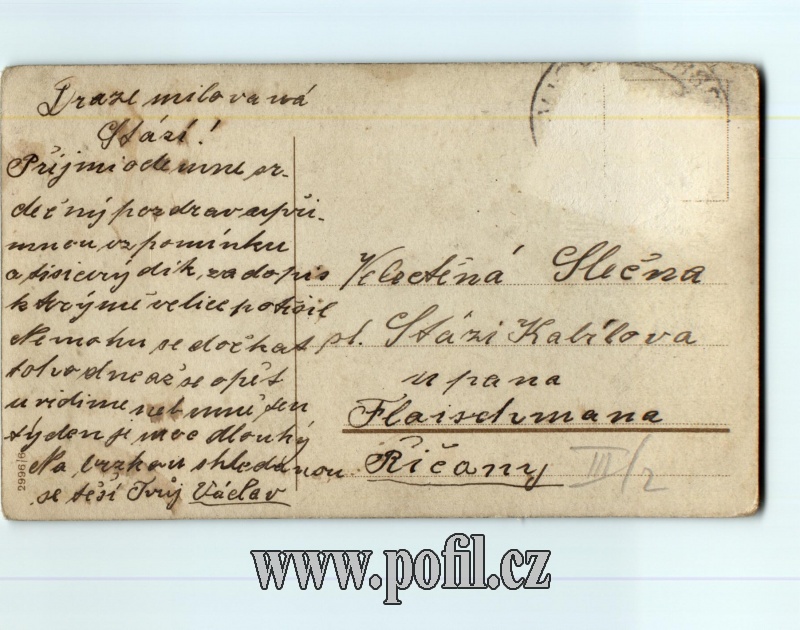 Draze milovaná
Stází!
Příjmi ode mne sr-
dečný pozdrav a upří-
mnou vzpomínku
a tisicerý dik, za dopis
ktrý mě velice potěšil
Nemohu se dočkat
toho dne až se opět
uvidime neb mně ten
týden je moc dlouhý
Na brzkou shledanou
se těší Tvůj Václav
2996/6
Velectěná Slečna
pl. Stázi Kabílova
u pana
Flaischmana
Řičany III/2
www.pofil.cz